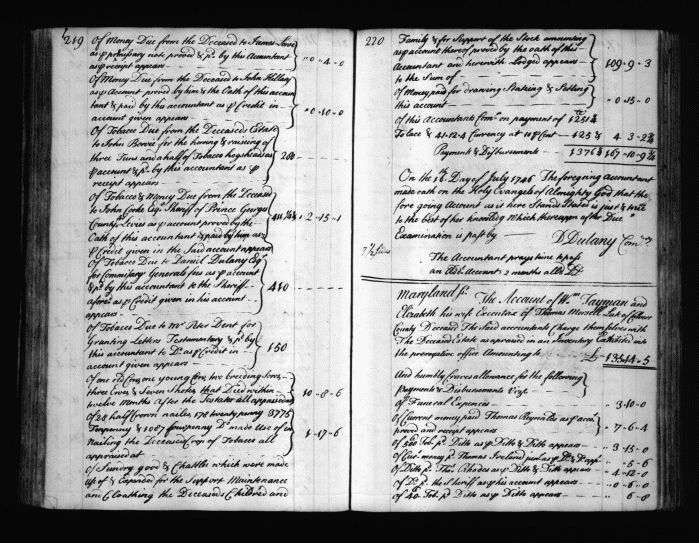 219
Of Money Due from the Deceased to James
as p promissory note proved & pd. by this Accountant
as p receipt appears — " 0 - 4 - 0
Of Money Due from the Deceased to John
as p Account proved by him & the Oath of this accoun
tant & paid by this accountant as p Credit in
account given appears — " 0 - 10 - 0
Of Tobacco Due from the Deceaseds Estate
to John for the & raising of
three Tuns and a half of Tobacco hogsheads as
p account & p. by this accountant as p
receipt appears — 280
Of Tobacco & Money Due from the Deceased
to John Cooke Esqr. Sheriff of Prince Georges
County Levies as p account proved by the
Oath of this accountant & paid by him as
p Credit given in the Said account appears 2 - 15 - 1
Of Tobacco Due to Daniel Dulany Esqr
for Commissary Generals fees as p account
& p. by this accountant to the Sheriff
afores. as p Credit given in his account
appears — 410
Of Tobacco Due to Mr. Peter Dent for
Granting Letters Testamentary & p. by
this accountant to Do. as p Credit in
account given appears — 150
of one old one young two breeding Sows
three Ewes & Seven Shotes that Died within
twelve Months After the Testator all appraised at 10 - 8 - 6
Of 28 half Crown nailes 178 twenty penny 3775
Tenpenny & 1087 penny Do. made Use of in
Nailing the Deceaseds Crop of Tobacco all
appraised at 1 - 17 - 6
of Sundry good & Chattles which were made
up of & Expended for the Support Maintenance
and Cloathing the Deceaseds Children and
220
Family & for Support of the Stock amounting
as p account thereof proved by the oath of this
Accountant and herewith Lodged appears
to the Sum of — 109 - 9 - 3
Of Money paid for drawing Stating & Setling
this account — " 0 - 15 - 0
of this Accountants Comn. on payment of 1251
Tobacco & 41 - 12 - 4 Currency at 10 p Cent — 125 4 - 3 - 2
Payments & Disbursements — 1376 167 - 10 - 9
On the 16th. Day of July 1746 The foregoing Accountant
made oath on the Holy Evangels of Almighty God that the
fore going Account as is here Stands Stated is just & true
to the best of her knowledg Which thereupon after Due
Examination is past by — D Dulany Comry.
7 1/2 Sides
The Accountant prays time to pass
an Adl. Account 2 months alld.
Maryland ss. The Account of Wm. Tayman and
Elizabeth his wife Executrix of Thomas Morsell Late of Calvert
County Deceased The Said accountants Charge themselves with
The Deceaseds Estate as appraised in an Inventory Exhibited into
the prerogative office Amounting to — £ 135 14 - 5
And humbly Craves allowance for the following
Payments & Disbursements Vizt.
of Funeral Expences — " 3 - 10 - 0
Of Current money paid Thomas Reynolds as p accot.
proved and receipt appears — " 7 - 6 - 4
of 500 Tob. p. Ditto as p Ditto & Ditto appears — " 3 - 15 - 0
of Curt. money p. Thomas Ireland junr. as p Do. & Do. app. — " - 5 - 6
of Ditto p. Thos. Rhodes as p Ditto & Ditto appears — " 4 - 12 - 0
of Do. p. the Sheriff as p his account appears — " 0 - 6 - 0
of 40 Tob. p. Ditto as p Ditto appears — " 0 6 - 8